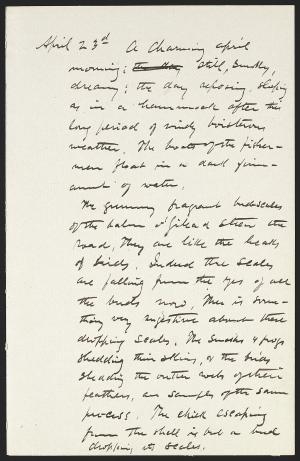 April 23d A Charming april
morning; the day still, smoky,
dreamy; the day reposing, sleeping
as in a hammock after the
long period of windy boisterous
weather. The boats of the fisher-
men float in a dark firm-
ament of water.
The gummy fragrant bud-scales
of the balm o' gilead strew the
road, They are like the beaks
of birds. Indeed the scales
are falling from the eyes of all
the buds now. There is some-
thing very suggestive about these
dropping scales. The snakes & frogs
shedding their skins, or the birds
shedding the outer webs of their
feathers, are samples of the same
process. The chick escaping
from the shell is but a bud
dropping its scales.